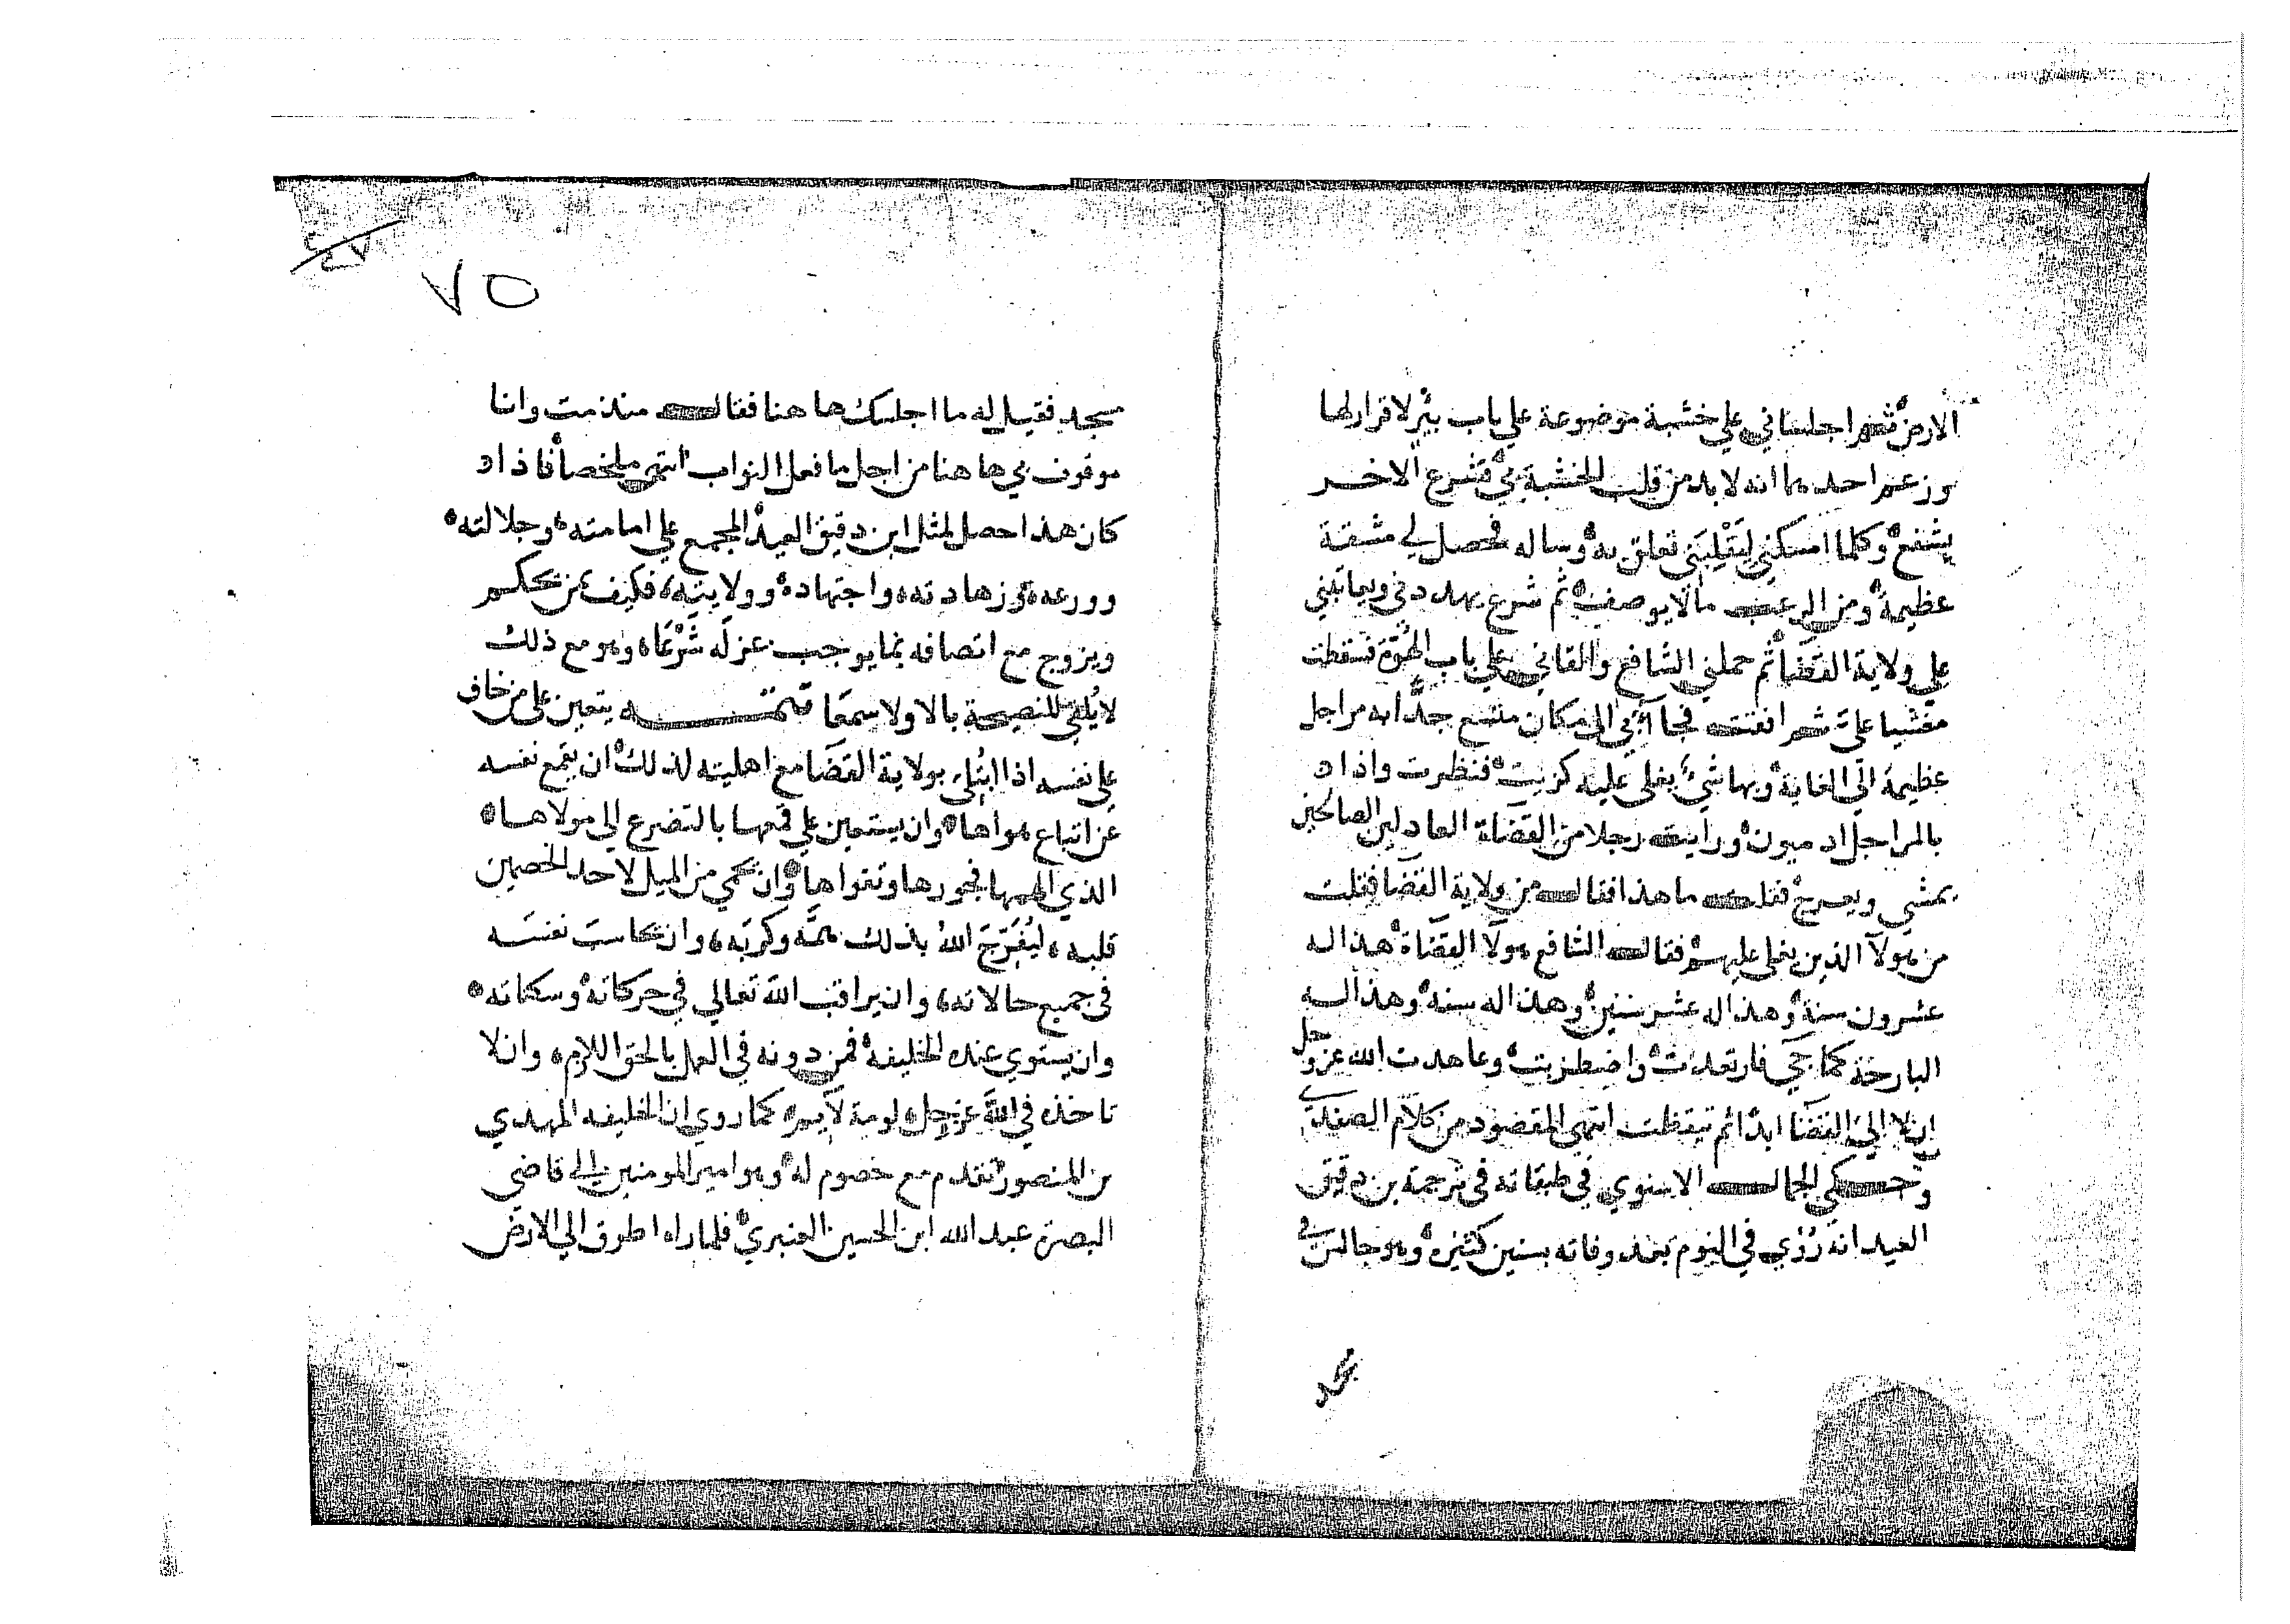 الارض ثم اجلسنا في علي خشبة موضوعة علي باب بير لا قرار لها
وزعم احدهما انه لا بد من قلب الخشبة بي فشرع الاخر
يشفع وكلما امسكني ليقلبني تعلق به وساله فحصل لي مشقة
عظيمة ومن الرعب ما لا يوصف ثم شرع يهددني ويعاتبني
علي ولاية القضا ثم حملني الشافع والقاني علي باب الهوة فسقطت
مغشيا علي ثم افقت فجاآ بي الى مكان متسع جدا به مراجل
عظيمة الي الغاية وبها شيء يغلي عليه كزيت فنظرت واذا
بالمراجل ادميون ورايت رجلا من القضاة العادلين الصالحين
يمشي ويعرج فقلت ما هذا فقال من ولاية القضا فقلت
من هولآ الذين يغلي عليهم فقال الشافع هولآ القضاة هذا له
عشرون سنة وهذا له عشر سنين وهذا له سنة وهذا له
البارحة كما جي فارتعدت واضطربت وعاهدت الله عز وجل
ان لا الي القضا ابدا ثم تيقظت انتهي المقصود من كلام الصفدي
وحكي الجمال الاسنوي في طبقاته في ترجمة بن دقيق
العيد انه رؤي في النوم بعد وفاته بسنين كثيرة وهو جالس في
مسجد
٧٥
مسجد فقيل له ما اجلسك ها هنا فقال منذ مت وانا
موقوف بي ها هنا من اجل ما فعل النواب انتهي ملخصا فاذا
كان هذا حصل لمثل ابن دقيق العيد المجمع علي امامته وجلالته
وورعه وزهادته واجتهاده وولايته فكيف بمن يحكم
ويزوج مع اتصافه بما يوجب عزله شرعا وهو مع ذلك
لا يلقي للنصيحة بالا ولا سمعا تتمة يتعين على من خاف
علي نفسه اذا ابتلي بولاية القضا مع اهليته لذلك ان يقمع نفسه
عن اتباع هواها وان يستعين علي قمعها بالتضرع الي مولاها
الذي الهمها فجورها وتقواها وان يحمي من الميل لاحد الخصمين
قلبه ليفرج الله بذلك همه وكربه وان يحاسب نفسه
في جميع حالاته وان يراقب الله تعالي في حركاته وسكناته
وان يستوي عنده الخليفة فمن دونه في العمل بالحق اللازم وان لا
تاخذه في الله عز وجل لومة لايم كما روي ان الخليفه المهدي
بن المنصور تقدم مع خصوم له وهو امير المومنين الي قاضي
البصرة عبد الله ابن الحسين العنبري فلما راه اطرق الي الارض